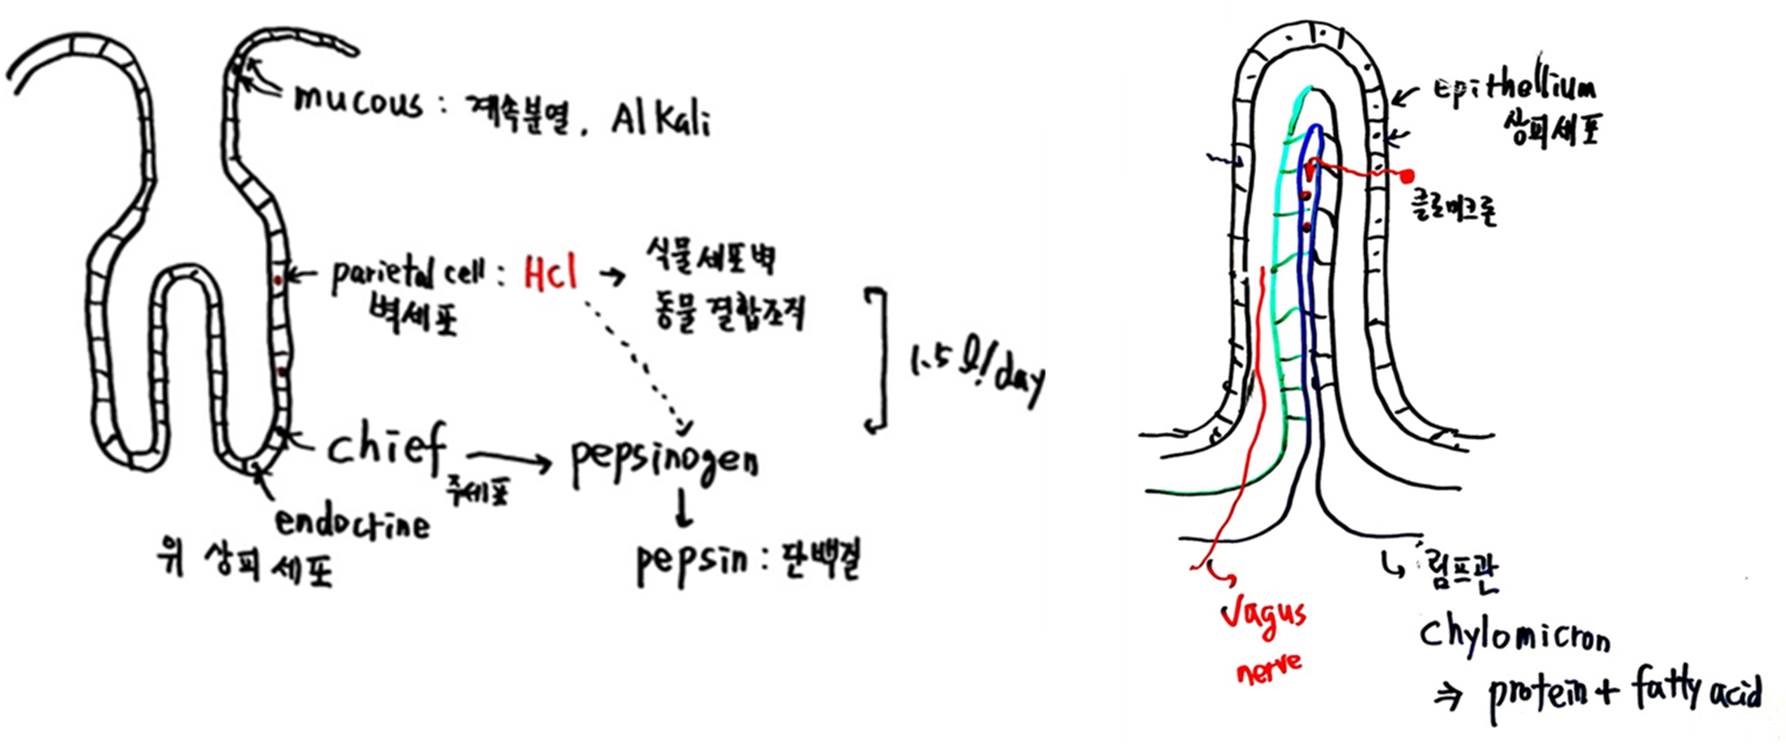 mucous : 계속분열, Alkali
parietal cell : HCl → 식물세포벽
벽세포
동물 결합조직
1.5 l/day
chief → pepsinogen
주세포
endocrine
위 상피세포
pepsin : 단백질
Epithellium
상피세포
클로미크론
림프관
Vagus
nerve
chylomicron
⇒ protein + fatty acid